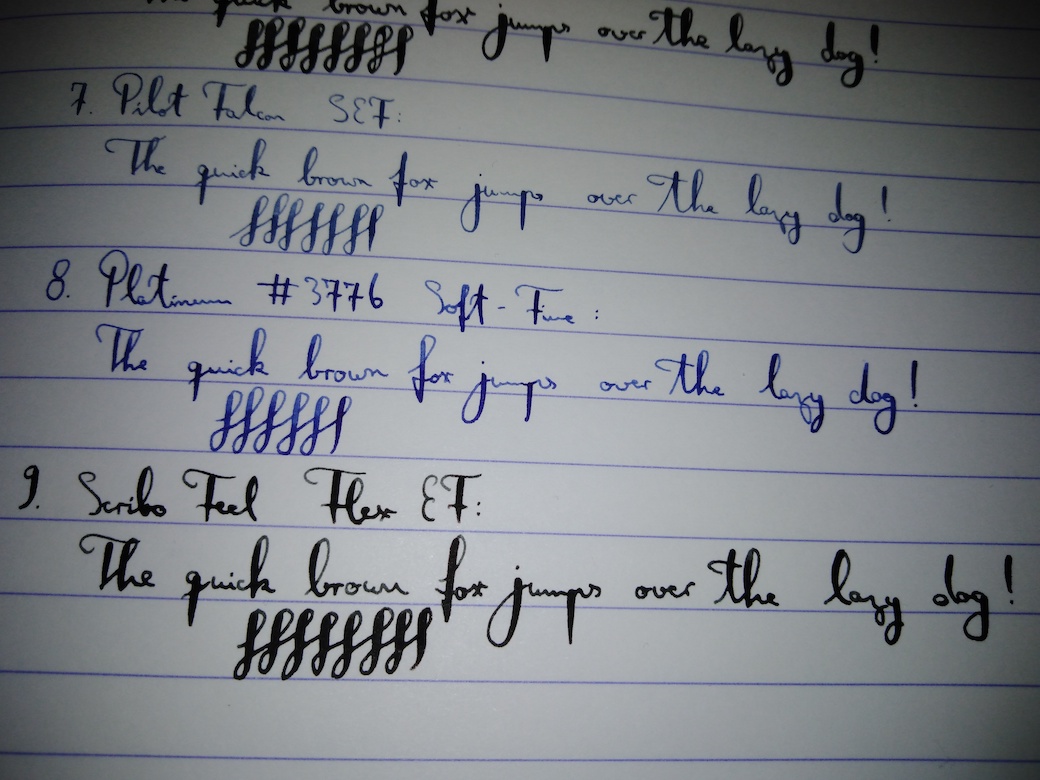 The quick brown fox jumps over the lazy dog!
ffffffff
7. Pilot Falcon SEF:
The quick brown fox jumps over the lazy dog!
fffffff
8. Platinum #3776 Soft-Fine:
The quick brown fox jumps over the lazy dog!
ffffff
9. Scribo Feel Flex EF:
The quick brown fox jumps over the lazy dog!
ffffffff